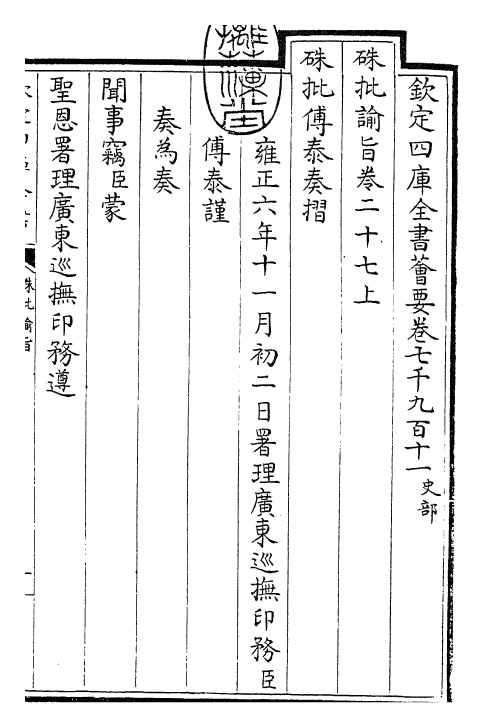 欽定四庫全書薈要卷七千九百十一史部
硃批諭旨卷二十七上
硃批傅泰奏摺
雍正六年十一月初二日署理廣東巡撫印務臣
傅泰謹
奏為奏
聞事竊臣蒙
聖恩署理廣東巡撫印務遵
硃批諭旨